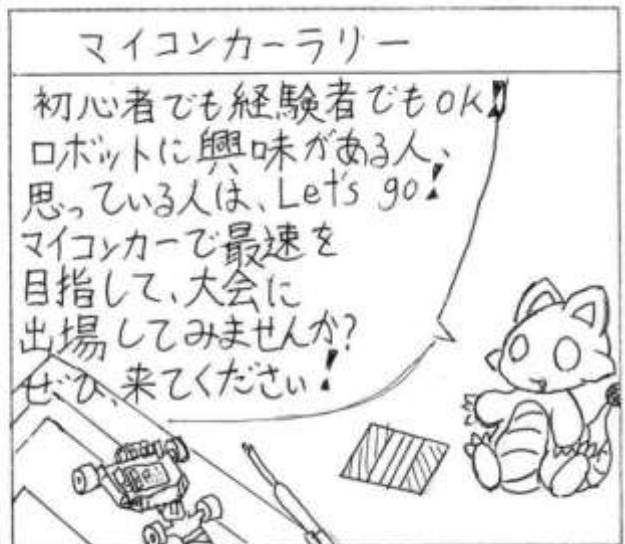 マイコンカーラリー
初心者でも経験者でもOK!
ロボットに興味がある人、
思っている人は、Let's go!
マイコンカーで最速を
目指して、大会に
出場してみませんか?
ぜひ、来てください!